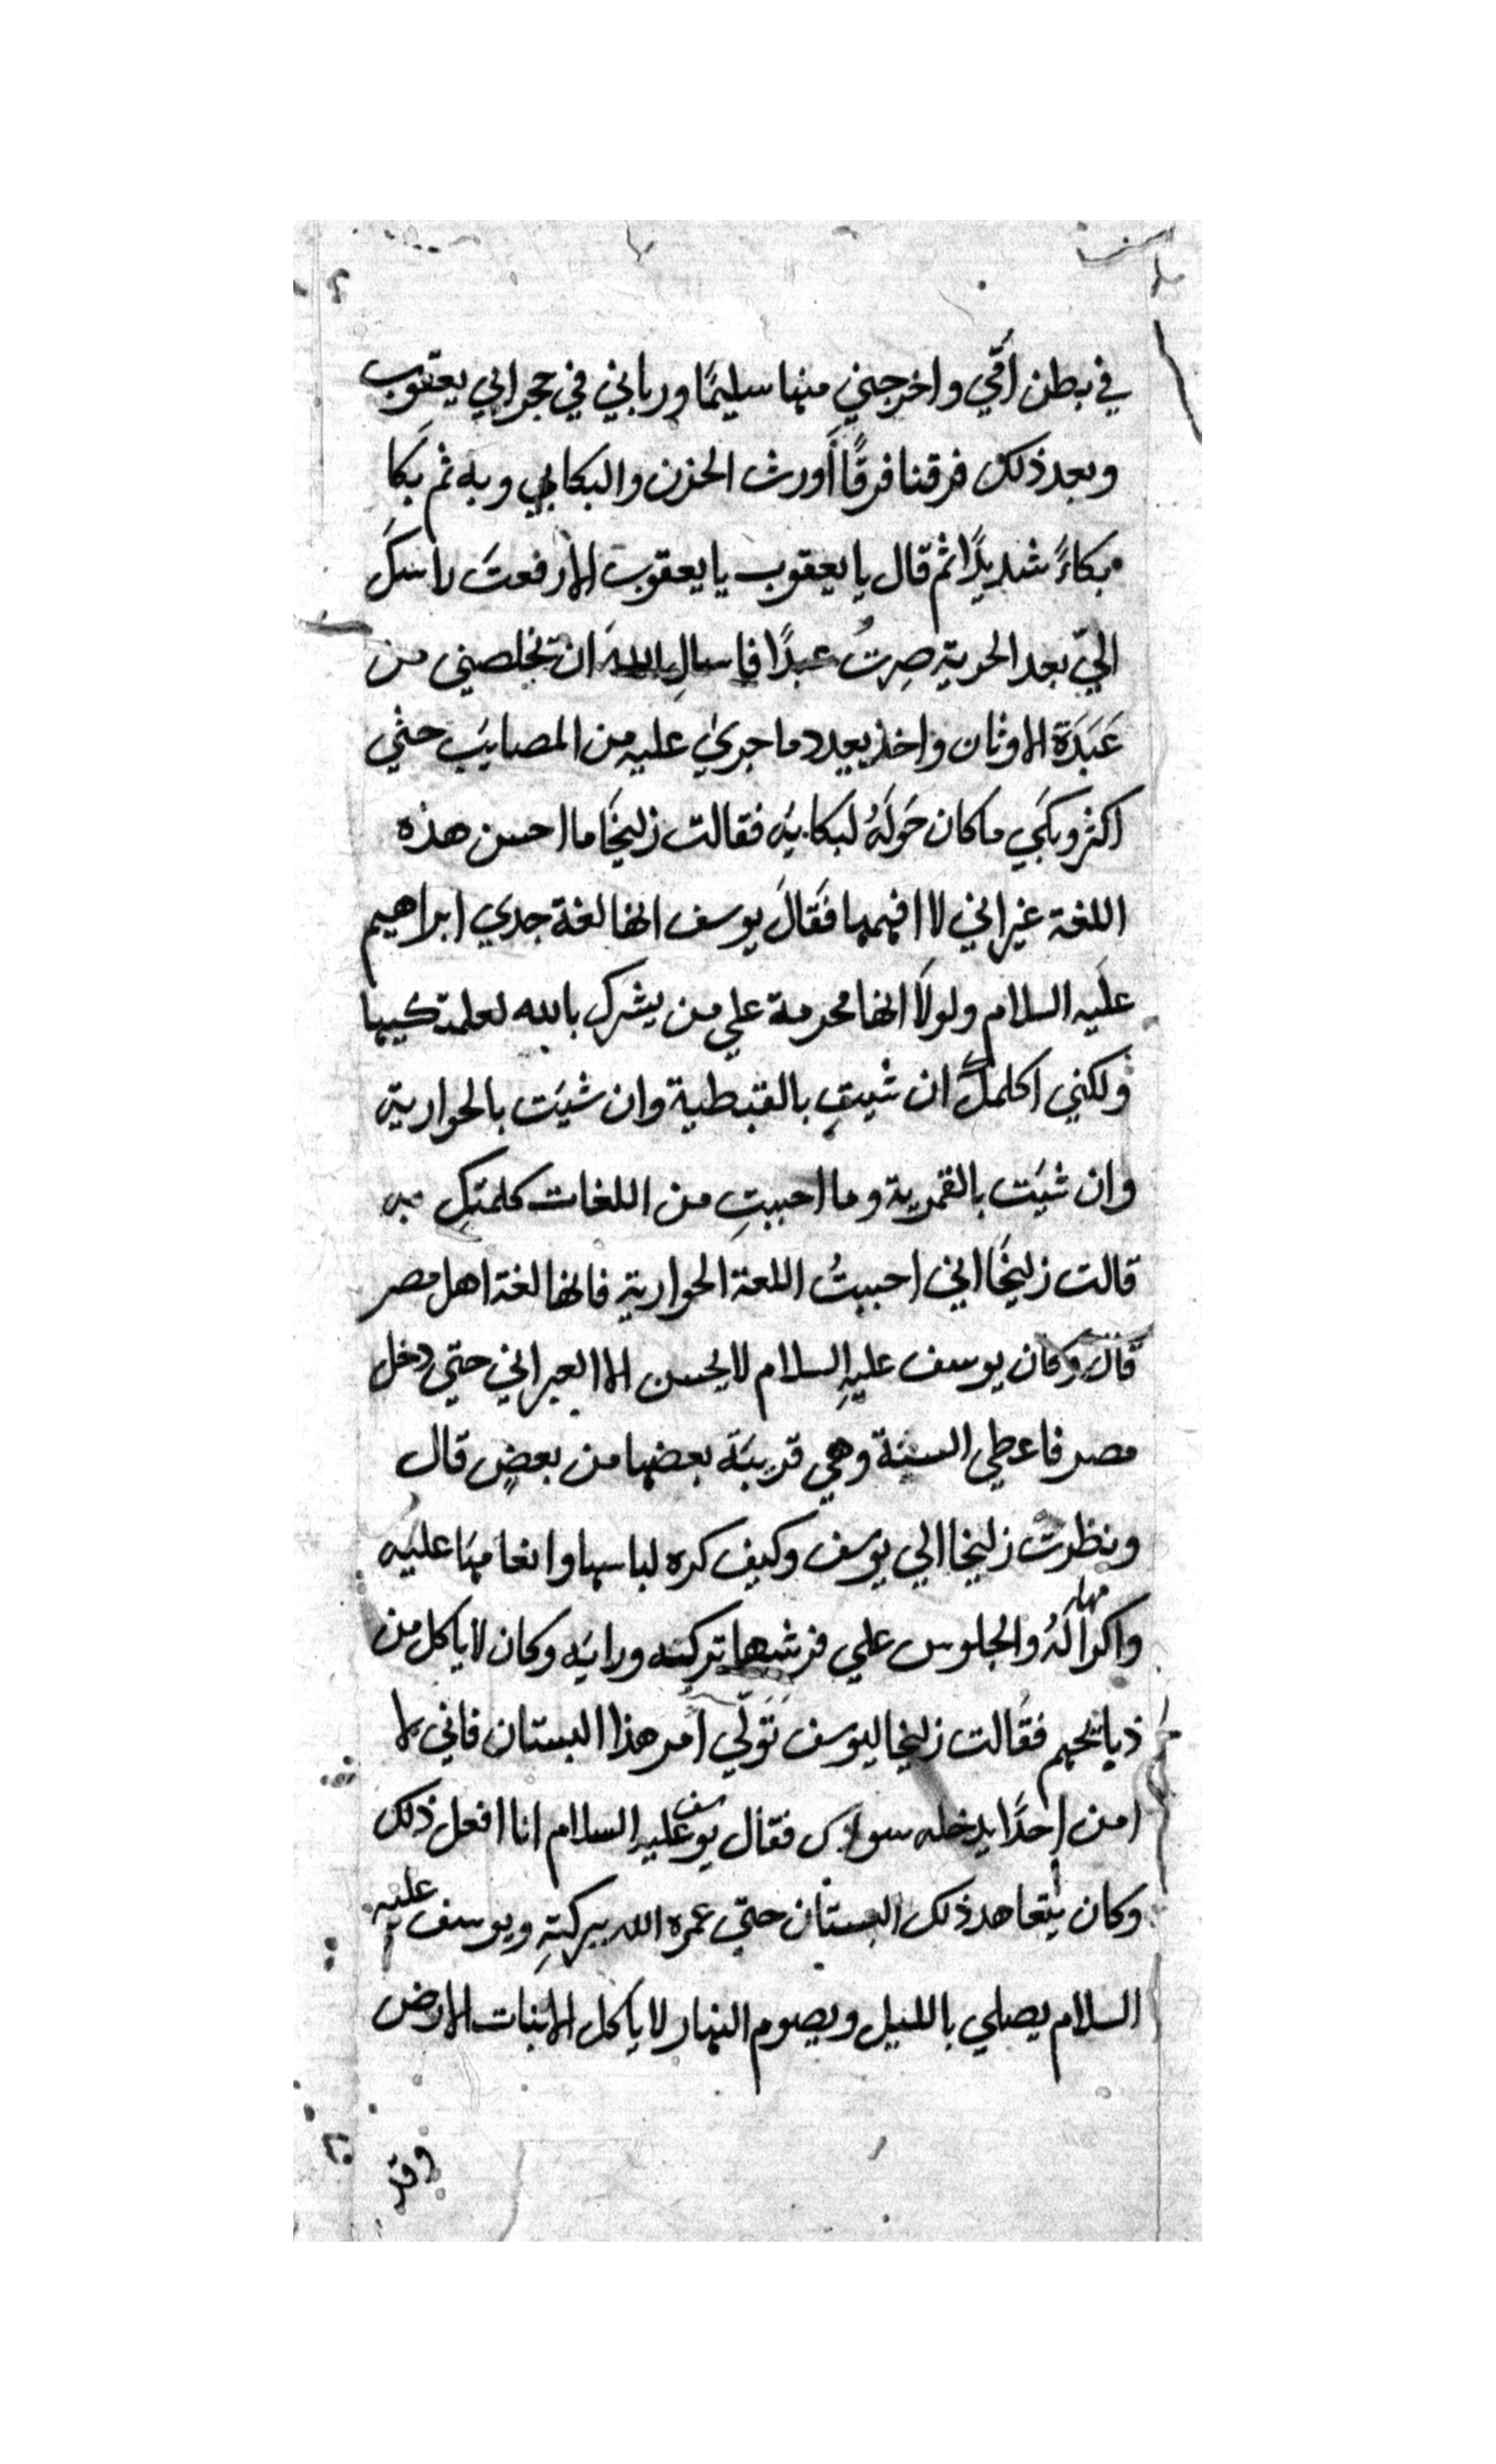 في بطن اُمّي واخرجني منها سليمًا ورباني في حجر ابي يعقوب
وبعد ذلك فرقنا فرقًا أورث الحزن والبكا بي وبه ثم بَكا
بكاءً شديدًا ثم قال يا يعقوب يا يعقوب الا رفعتَ راسكَ
اليّ بعد الحرية صِرتُ عبدًا فاسالِ الله ان تخلصني من
عَبَدَة الاوثان واخذ يعدد ما جريٰ عليه من المصايَب حتي
اكثر وبكَي ما كان حَولَهُ لبكايَه فقالت زليخَا ما احسن هذه
اللغة غير اني لا افهمها فَقَالَ يوسف انها لغة جدي ابراهيم
علَيه السلام ولولَا انها محرمة علي من يشرك بالله لعلمتكيها
ولكني اكلمكِ ان شيتِ بالقبطية وان شيَت بالحوارية
وان شيَت بالقمرية وما احببتِ من اللغات كلمتكِ به
قالت زليخَا اني احببتُ اللغة الحوارية فانها لغة اهل مصر
قال وكان يوسف عليهِ السلام لا يحسن الا العبراني حتي دخل
مصر فاعطي السنة وهي قريبَة بعضها من بعضٍ قال
ونظرت زليخا الي يوسف وكيف كره لباسها وانعامهَا عليَه
واكرامها لهُ والجلوس علي فرشها تركته ورايَه وكان لا ياكل من
ذبايحهم فقُالت زليخا ليوسف تَوَلّي اَمر هذا البستان فاني لا
امن احدًا يدخله سواك فقال يوسف عليه السلام انا افعل ذلك
وكان يتعاهد ذلك البستان حتّي عمره الله ببركتِهِ ويوسف عليه
السلام يصلي بالليل ويصوم النهار لا ياكل الا نبات الارض